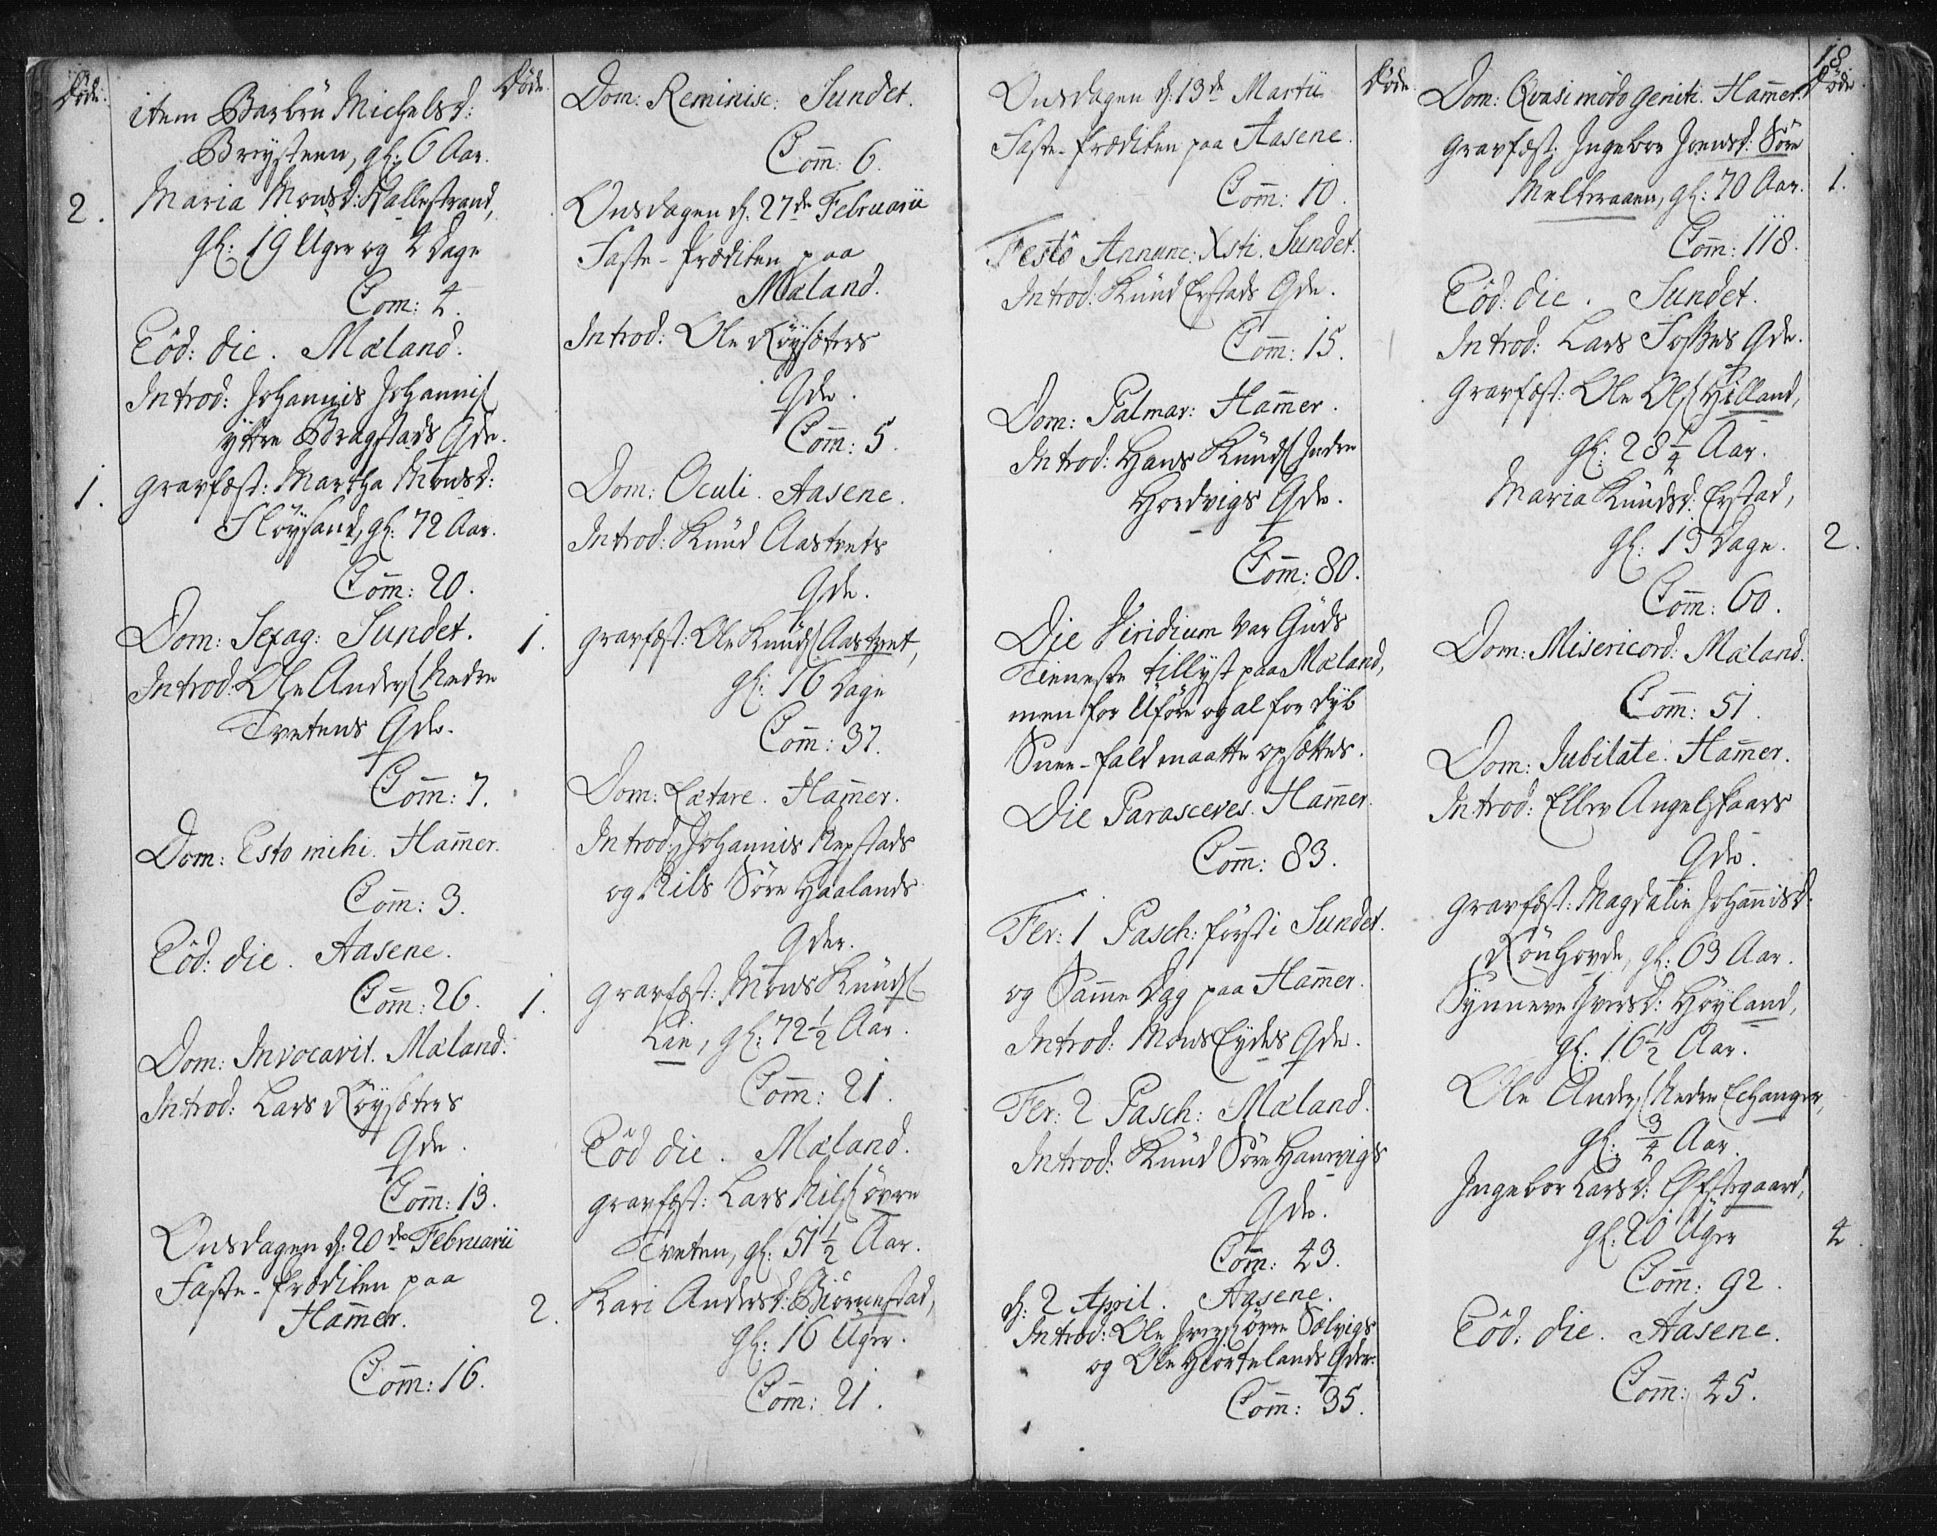 Døde.
item Barbru Michelsd:
Brysteen, gl: 6 Aar.
2. Maria Monsd: Kallestrand,
gl: 19 Uger og 2 Dage
Com: 4.
Eôd: die. Mæland.
Introd: Johannis Johannis
yttre Bragstads Qde.
1. gravfæst: Martha Monsd:
Fløysand, gl: 72 Aar.
Com̄: 20.
Dom: Sexag: Sundet.
Introd: Ole Anders Nedre
Tvetens Qde.
Com̄: 7.
Dom: Esto mihi. Ham̄er.
Com̄: 3.
Eôd: die. Aasene.
Com̄: 26.
Dom: Invocavit. Mæland.
Introd: Lars Røysæters
Qde.
Com̄: 13.
Onsdagen d: 20de Februarii
Faste-Prædiken paa
Ham̄er.
Com̄: 16.
Døde.
Dom: Reminisc: Sundet.
Com̄: 6.
Onsdagen d. 27de Februarii
Faste-Prædiken paa
Mæland.
Introd: Ole Røysæters
Qde.
Com̄: 5.
Dom: Oculi. Aasene.
Introd: Knud Aastvets
Qde.
1. gravfæst: Ole Knuds Aastvet,
gl: 16 Dage
Com̄: 37.
Dom: Lætare. Ham̄er.
Introd: Johannis Repstads
og Nils Søre Haalands
Qder.
1. gravfæst: Mons Knuds
Lie, gl: 72 1/2 Aar.
Com̄: 21.
Eôd die. Mæland.
gravfæst: Lars Nils øvre
Tveten, gl: 51 1/2 Aar.
2. Kari Andersd: Biørnestad,
gl: 16 Uger.
Com̄: 21.
Onsdagen d: 13de Martii
Faste-Prædiken paa Aasene.
Com̄: 10.
Festô Annunc: Xsti. Sundet.
Introd: Knud Erstads Qde.
Com̄: 15.
Dom: Palmar: Ham̄er.
Introd: Hans Knuds Indre
Hordvigs Qde.
Com̄: 80.
Die Viridium var Guds
Tieneste tillyst paa Mæland,
men for Uføre og alfor dyb
Snee-fald maatte opsættes.
Die Parasceves. Ham̄er.
Com̄: 83.
Fer: 1 Pasch: først i Sundet.
og Sam̄e Dag paa Ham̄er.
Introd: Mons Eydes Qde.
Fer: 2 Pasch: Mæland.
Introd: Knud Søre Hanevigs
Qde.
Com̄: 43.
d: 2 April. Aasene.
Introd: Ole Ivers øvre Sælvigs
og Ole Hiortelands Qder.
Com̄: 35.
Døde.
18
Døde
Dom: Qvasimôdo geniti. Ham̄er.
gravfæst: Ingebor Joensd: Søre
Meltveraaen, gl: 70 Aar. 1.
Com̄: 118.
Eôd: die. Sundet.
Introd: Lars Fosses Qde.
gravfæst: Ole Ols Hilland,
gl: 28 1/4 Aar.
Maria Knudsd: Erstad,
gl: 19 Dage. 2.
Com̄: 60.
Dom: Misericord: Mæland.
Com̄: 51.
Dom: Jubilate. Ham̄er.
Introd: Eller Angelskaars
Qde.
gravfæst: Magdalin Johannisd:
Rønhovde, gl: 63 Aar.
Synneve Iversd: Høyland,
gl: 16 1/2 Aar.
Ole Anders Nedre Echanger,
gl: 3/4 Aar.
Ingebor Larsd: Øfstegaard,
gl: 20 Uger 4.
Com̄: 92.
Eôd: die. Aasene.
Com̄: 45.